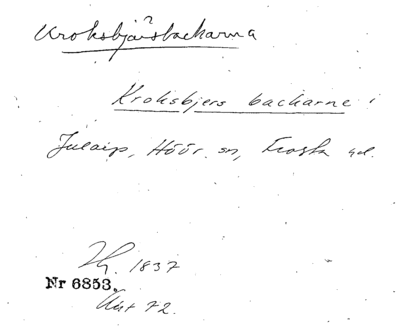 Kroksbjärsbackarna
?
Kroksbjers backarne i
Julaip, Höör sn, Frosta hd.
1837
Nr 6853.
Avst 72.